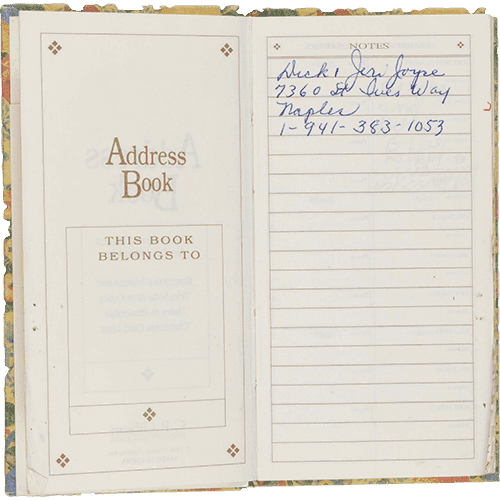 Address
Book
THIS BOOK
BELONGS TO
NOTES
Dick & Jeri Joyse
7360 St Ives Way
Naples
1-941-383-1053